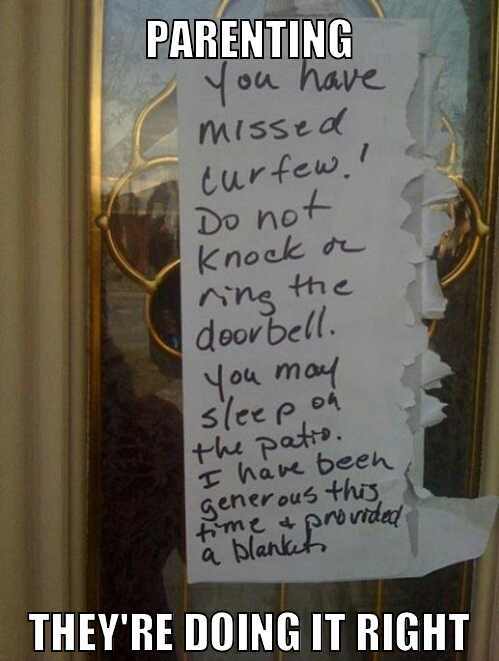 PARENTING
You have
missed
curfew.!
Do not
Knock or
ring the
doorbell.
You may
sleep on
the patio.
I have been
generous this
time + provided
a blanket
THEY'RE DOING IT RIGHT